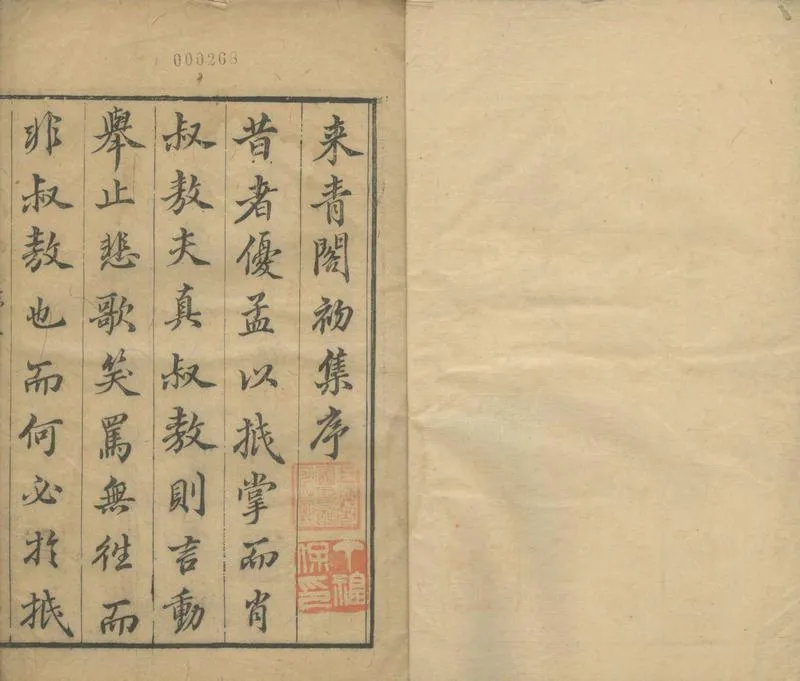 000268
来青閣初集序
昔者優孟以抵掌而肖
叔敖夫真叔敖則言動
舉止悲歌笑罵無徃而
非叔敖也而何必扵抵